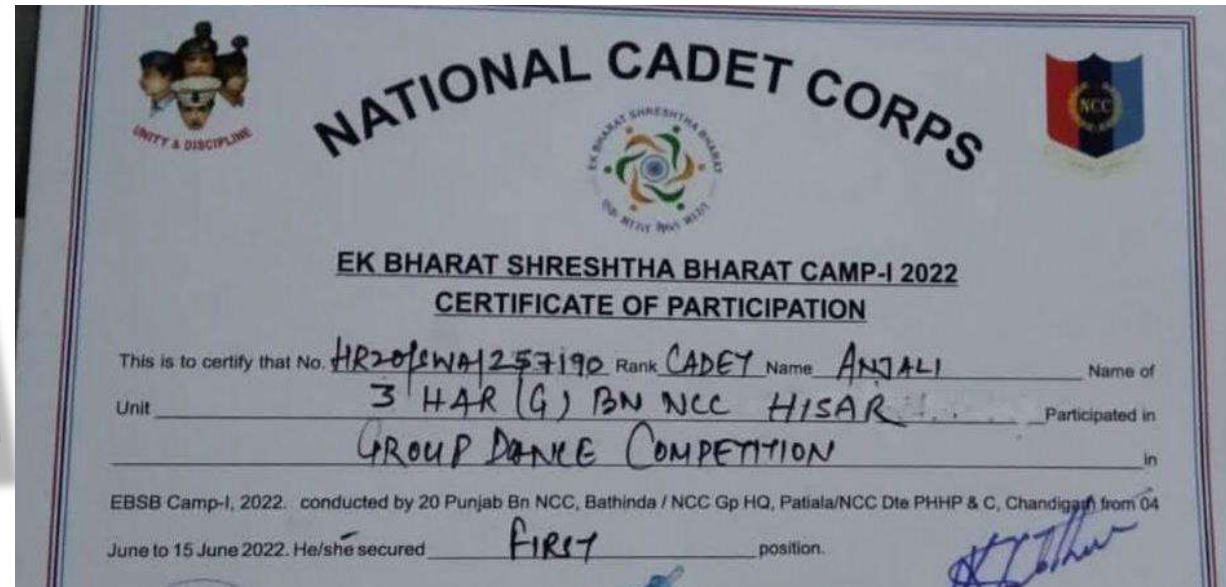 NATIONAL CADET CORPS
UNITY & DISCIPLINE
NCC
EK BHARAT SHRESHTHA BHARAT
EK BHARAT SHRESHTHA BHARAT CAMP-I 2022
CERTIFICATE OF PARTICIPATION
This is to certify that No. HR20/SWA/257190 Rank CADET Name ANJALI Name of
Unit 3 HAR (G) BN NCC HISAR Participated in
GROUP DANCE COMPETITION in
EBSB Camp-I, 2022. conducted by 20 Punjab Bn NCC, Bathinda / NCC Gp HQ, Patiala/NCC Dte PHHP & C, Chandigarh from 04
June to 15 June 2022. He/she secured FIRST position.